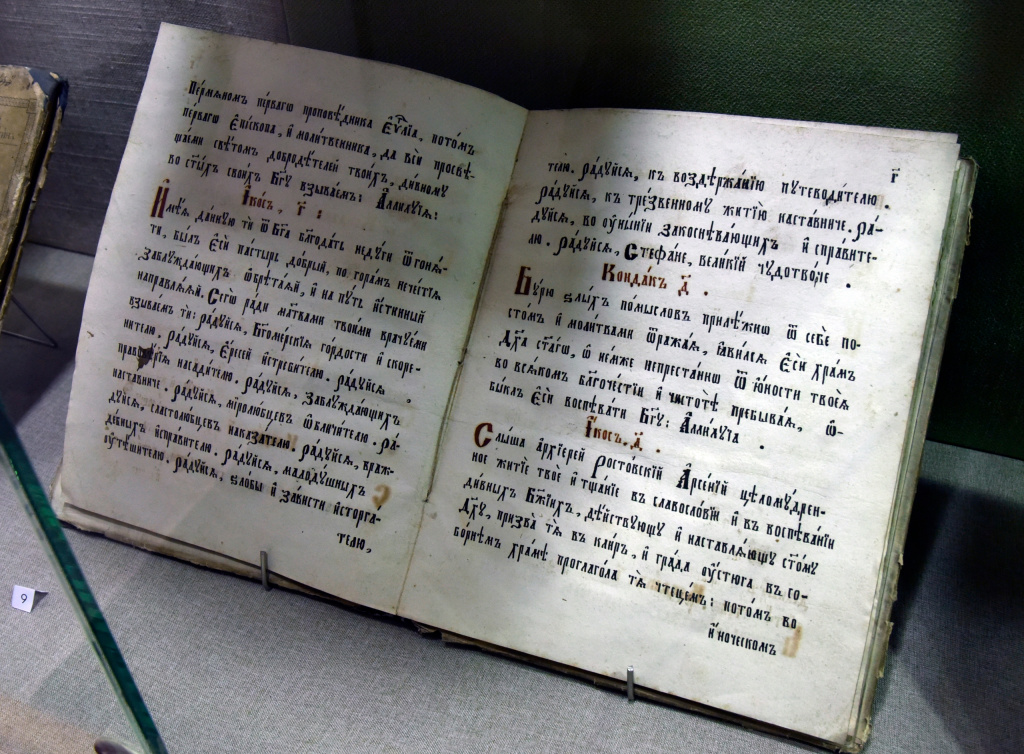 Пермѧномъ первагѡ проповѣдника Еѵⷢ҇лїа, потомъ
первагѡ Епⷭ҇кпа, и҆ молитвенника, да вси просвѣ-
щаеми свѣтомъ добродѣтелей твоихъ, дивному
во ст҃ыхъ своихъ Бг҃у взываемъ: Аллилуїа:
Ікосъ, г҃:
Имѣѧ данную ти ѿ Бг҃а благодать недуги ѿгонѧ-
ти, былъ еси пастырь добрый, по горамъ нечестїѧ
заблуждающихъ ѡбрѣтаѧй, и на путь истинный
направлѧѧй. Сегѡ ради мл҃твами твоими врачуеми
взываемъ ти: радуйсѧ, Бг҃омерскїѧ гордости и скоре-
нителю. радуйсѧ, Ересей истребителю. радуйсѧ
насадителю. радуйсѧ, заблуждающихъ
наставниче. радуйсѧ, миролюбцевъ ѡбличителю. ра-
дуйсѧ, сластолюбцевъ наказателю. радуйсѧ, враж-
дебныхъ исправителю. радуйсѧ, малодушныхъ
оутѣшителю. радуйсѧ, ѕлобы и зависти исторга-
телю,
г҃
телю. радуйсѧ, къ воздержанїю путеводителю.
радуйсѧ, къ трезвенному житїю наставниче. ра-
дуйсѧ, во оунынїи закоснѣвающихъ и справите-
лю. радуйсѧ, Стефане, великїй чудотворче.
Кондакъ д҃.
Бурю ѕлыхъ помысловъ прилѣжнѡ ѿ себе по-
стомъ и молитвами ѿражаѧ, ꙗвилсѧ еси храмъ
Дх҃а ст҃агѡ, ѡ немже непрестаннѡ ѿ юности твоеѧ
во всѧкомъ благочестїи и чистотѣ пребываѧ, ѡ-
быклъ еси воспѣвати Бг҃у: Аллилуїа.
Ікосъ. д҃.
Слыша архїерей Ростовскїй Арсенїй цѣломудрен-
ное житїе твое и тщанїе въ славословїи и въ воспѣванїи
дивныхъ Бж҃їихъ, дѣйствующу и наставлѧющу ст҃ому
Дх҃у, призва тѧ въ клиръ, и града оустюга въ со-
борнѣмъ храмѣ проглагола тѧ чтецемъ: потомъ во
иноческомъ
9